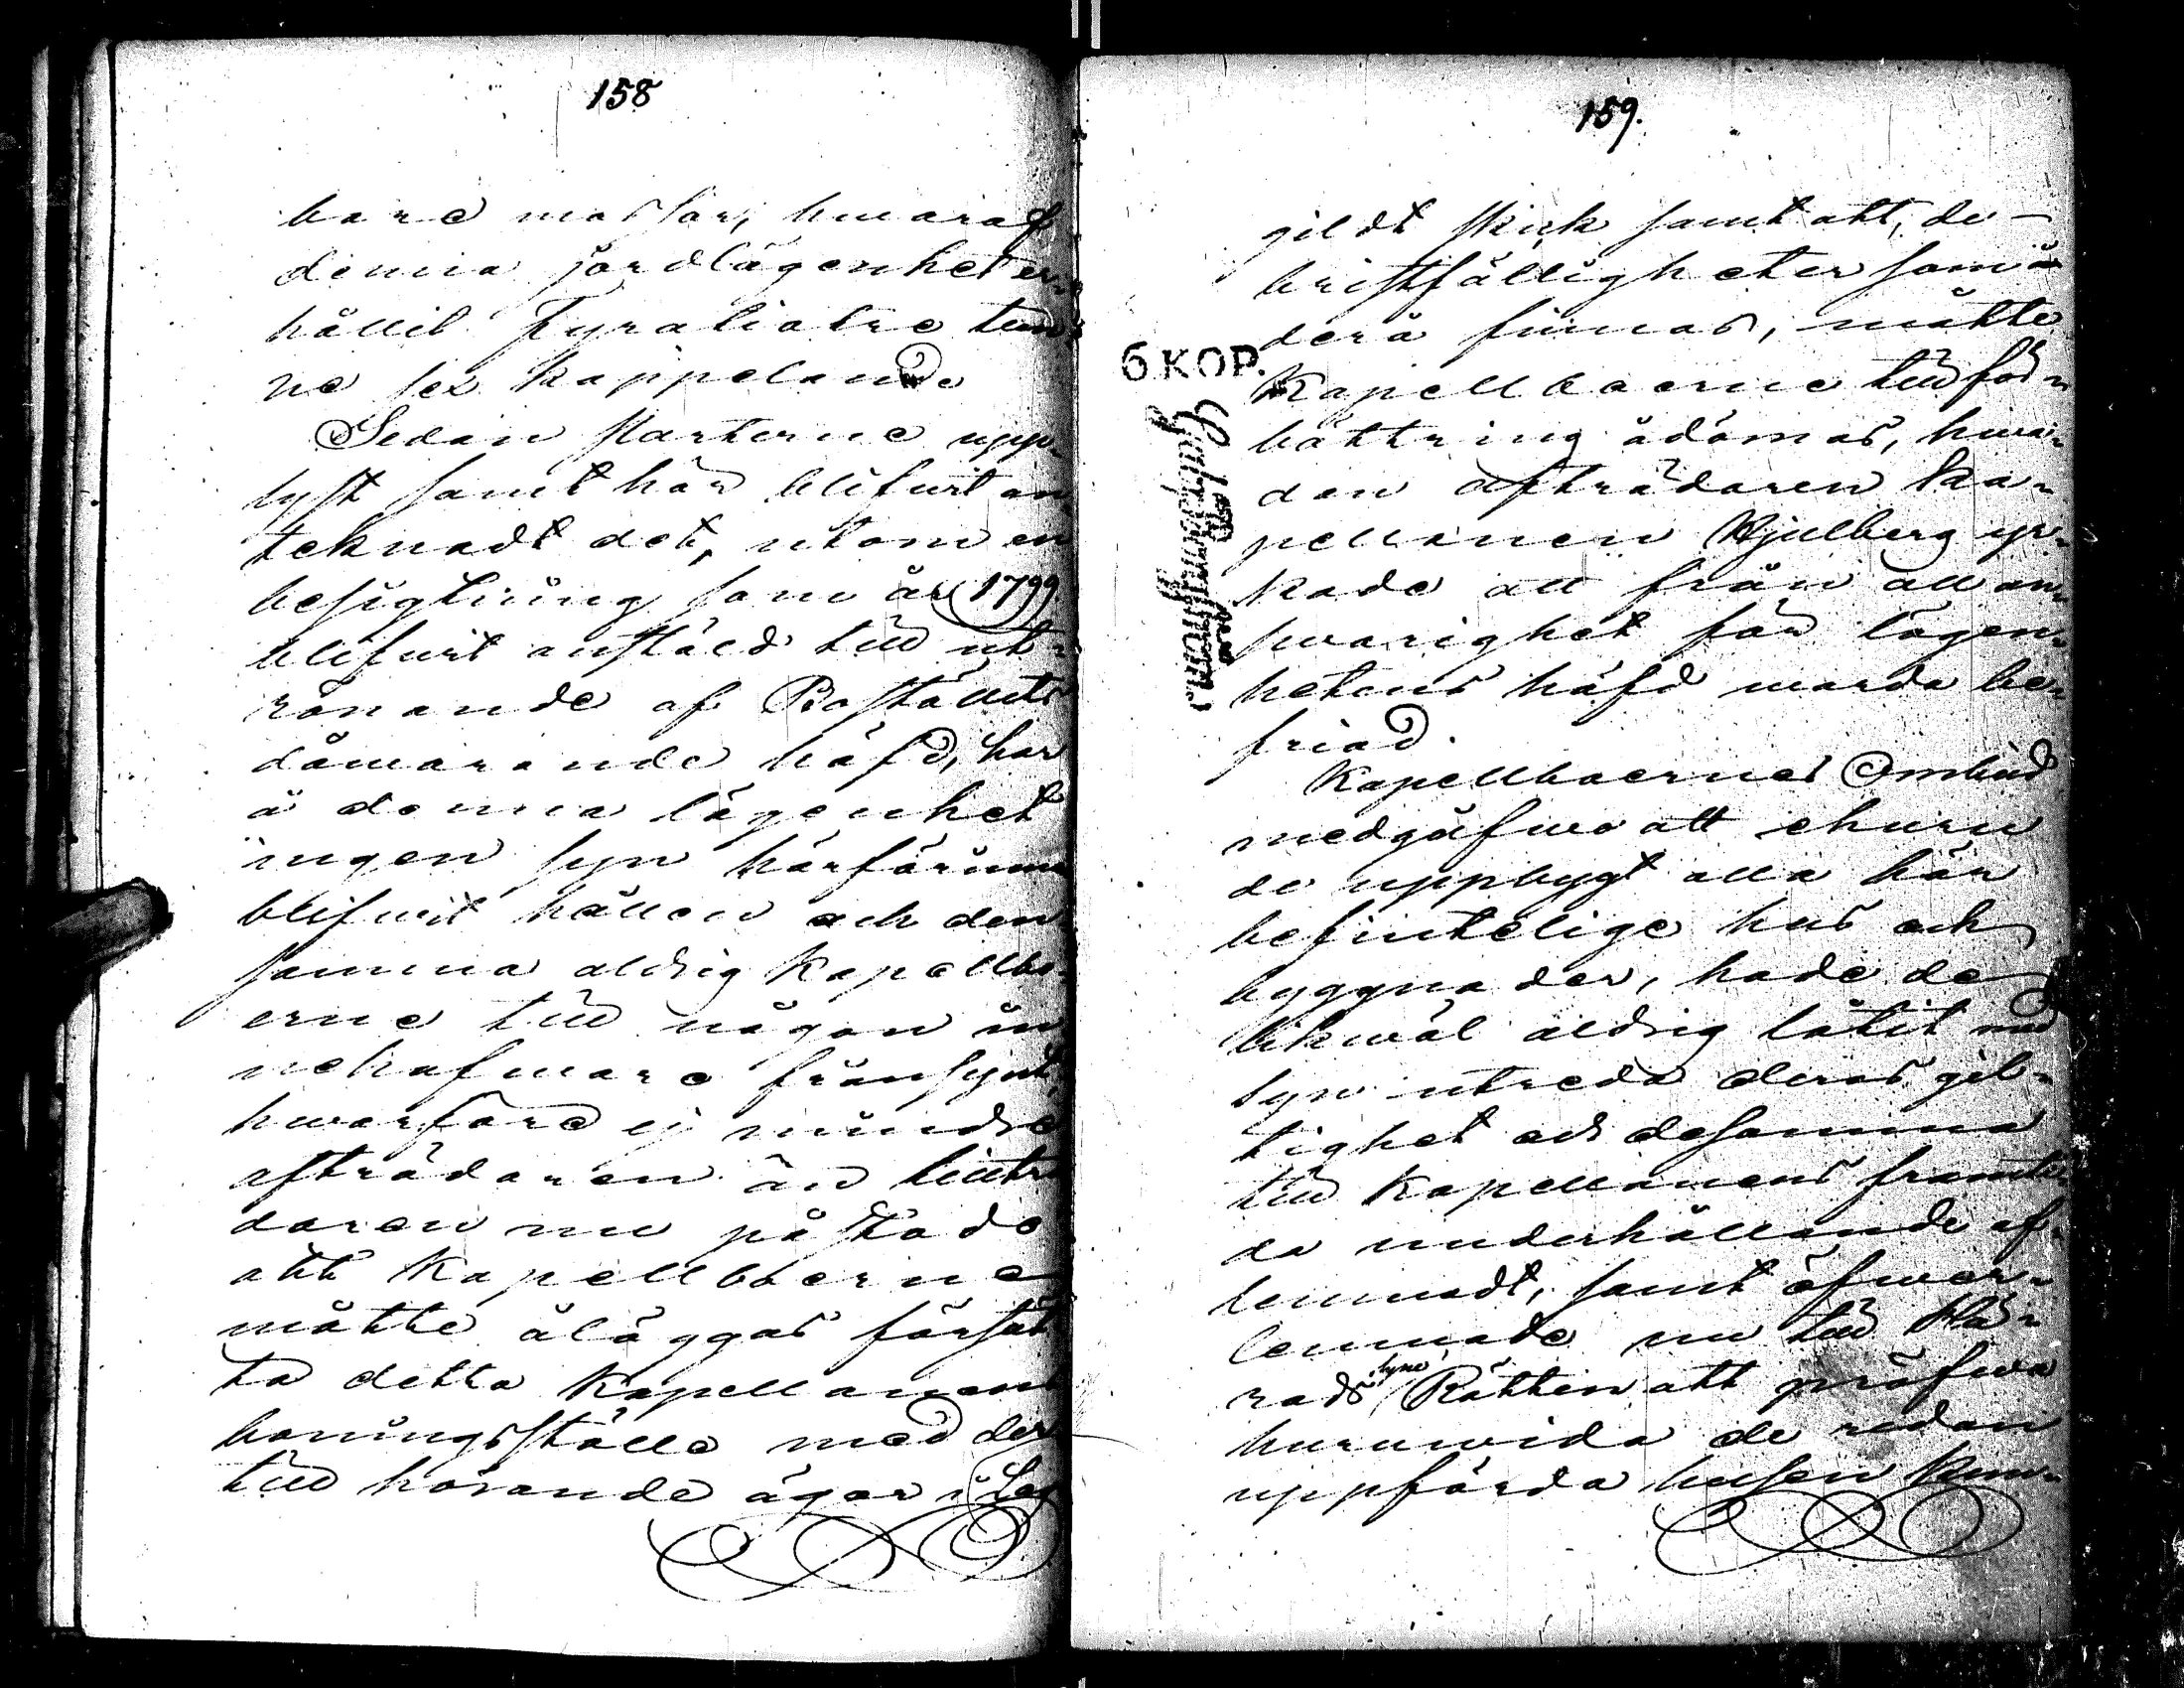 158
bare massor, hwaraf
denna jordlägenhet er-
hållit Fyratiotre tun-
ne sex kappelande
Sedan Parterne upp-
lyst samt här blifwit an-
teknadt det, utom en
besigtning som år 1799
blifwit anstäld till ut-
rönande af Boställets
dåwarande häfd, har
å denna lägenhet
ingen syn härförinna
blifwit hållen och den
samma aldrig Kapellbo-
erne till någon in
nehafware frånsynt,
hwarföre ej mindre
afträdaren än tillträ
daren nu påstodo
att Kapellboerne
måtte åläggas försät
ta detta Kapellanens
boningsställe med der
till hörande ägor i Lag
159.
gildt skick samt att, de
bristfälligheter som
derå finnas, måtte
6 KOP.
Kapellboerne till för-
bättring ådömas, hwar-
dan afträdaren Ka-
pellanen Hjulberg yr-
kade att från all an-
swarighet för lägen-
hetens häfd warda be-
friad.
Kapellboernes Ombud
medgåfwo att ehuru
de uppbygt alla här
befintelige hus och
byggnader, hade de
likwäl aldrig låtit med
syn utreda deras gil-
tighet och desamma
till Kapellanens framti
da underhållande af-
lemnadt, samt öfwer-
lemnade nu till Hä-
rads syne Rätten att pröfwa
huruwida de redan
uppförda husen kun-